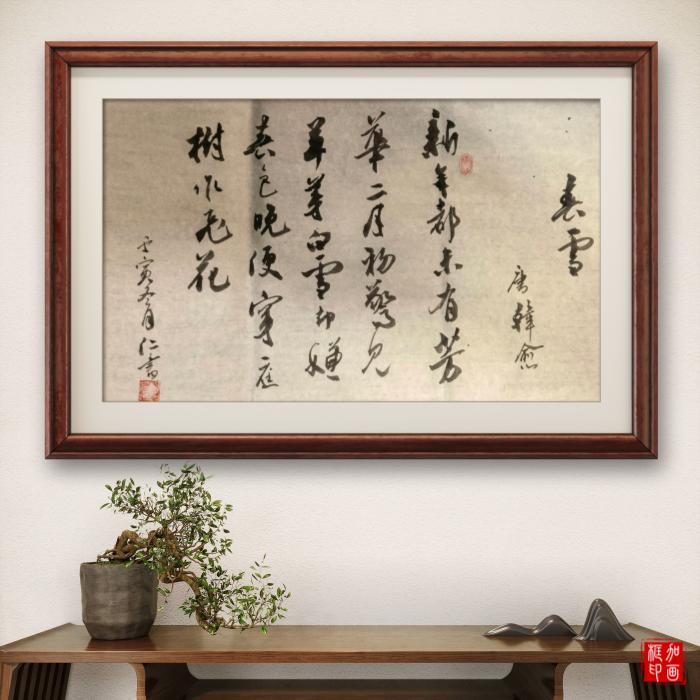 春雪
唐韓愈
新年都未有芳
華二月初驚見
草芽白雪却嫌
春色晚便穿庭
樹作飛花
壬寅冬月仁書
加画
框印